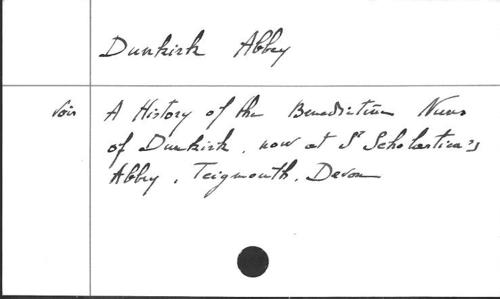 Dunkirk Abbey
voir A History of the Benedictine Nuns
of Dunkirk, now at St Scholastica's
Abbey, Teigmouth, Devon